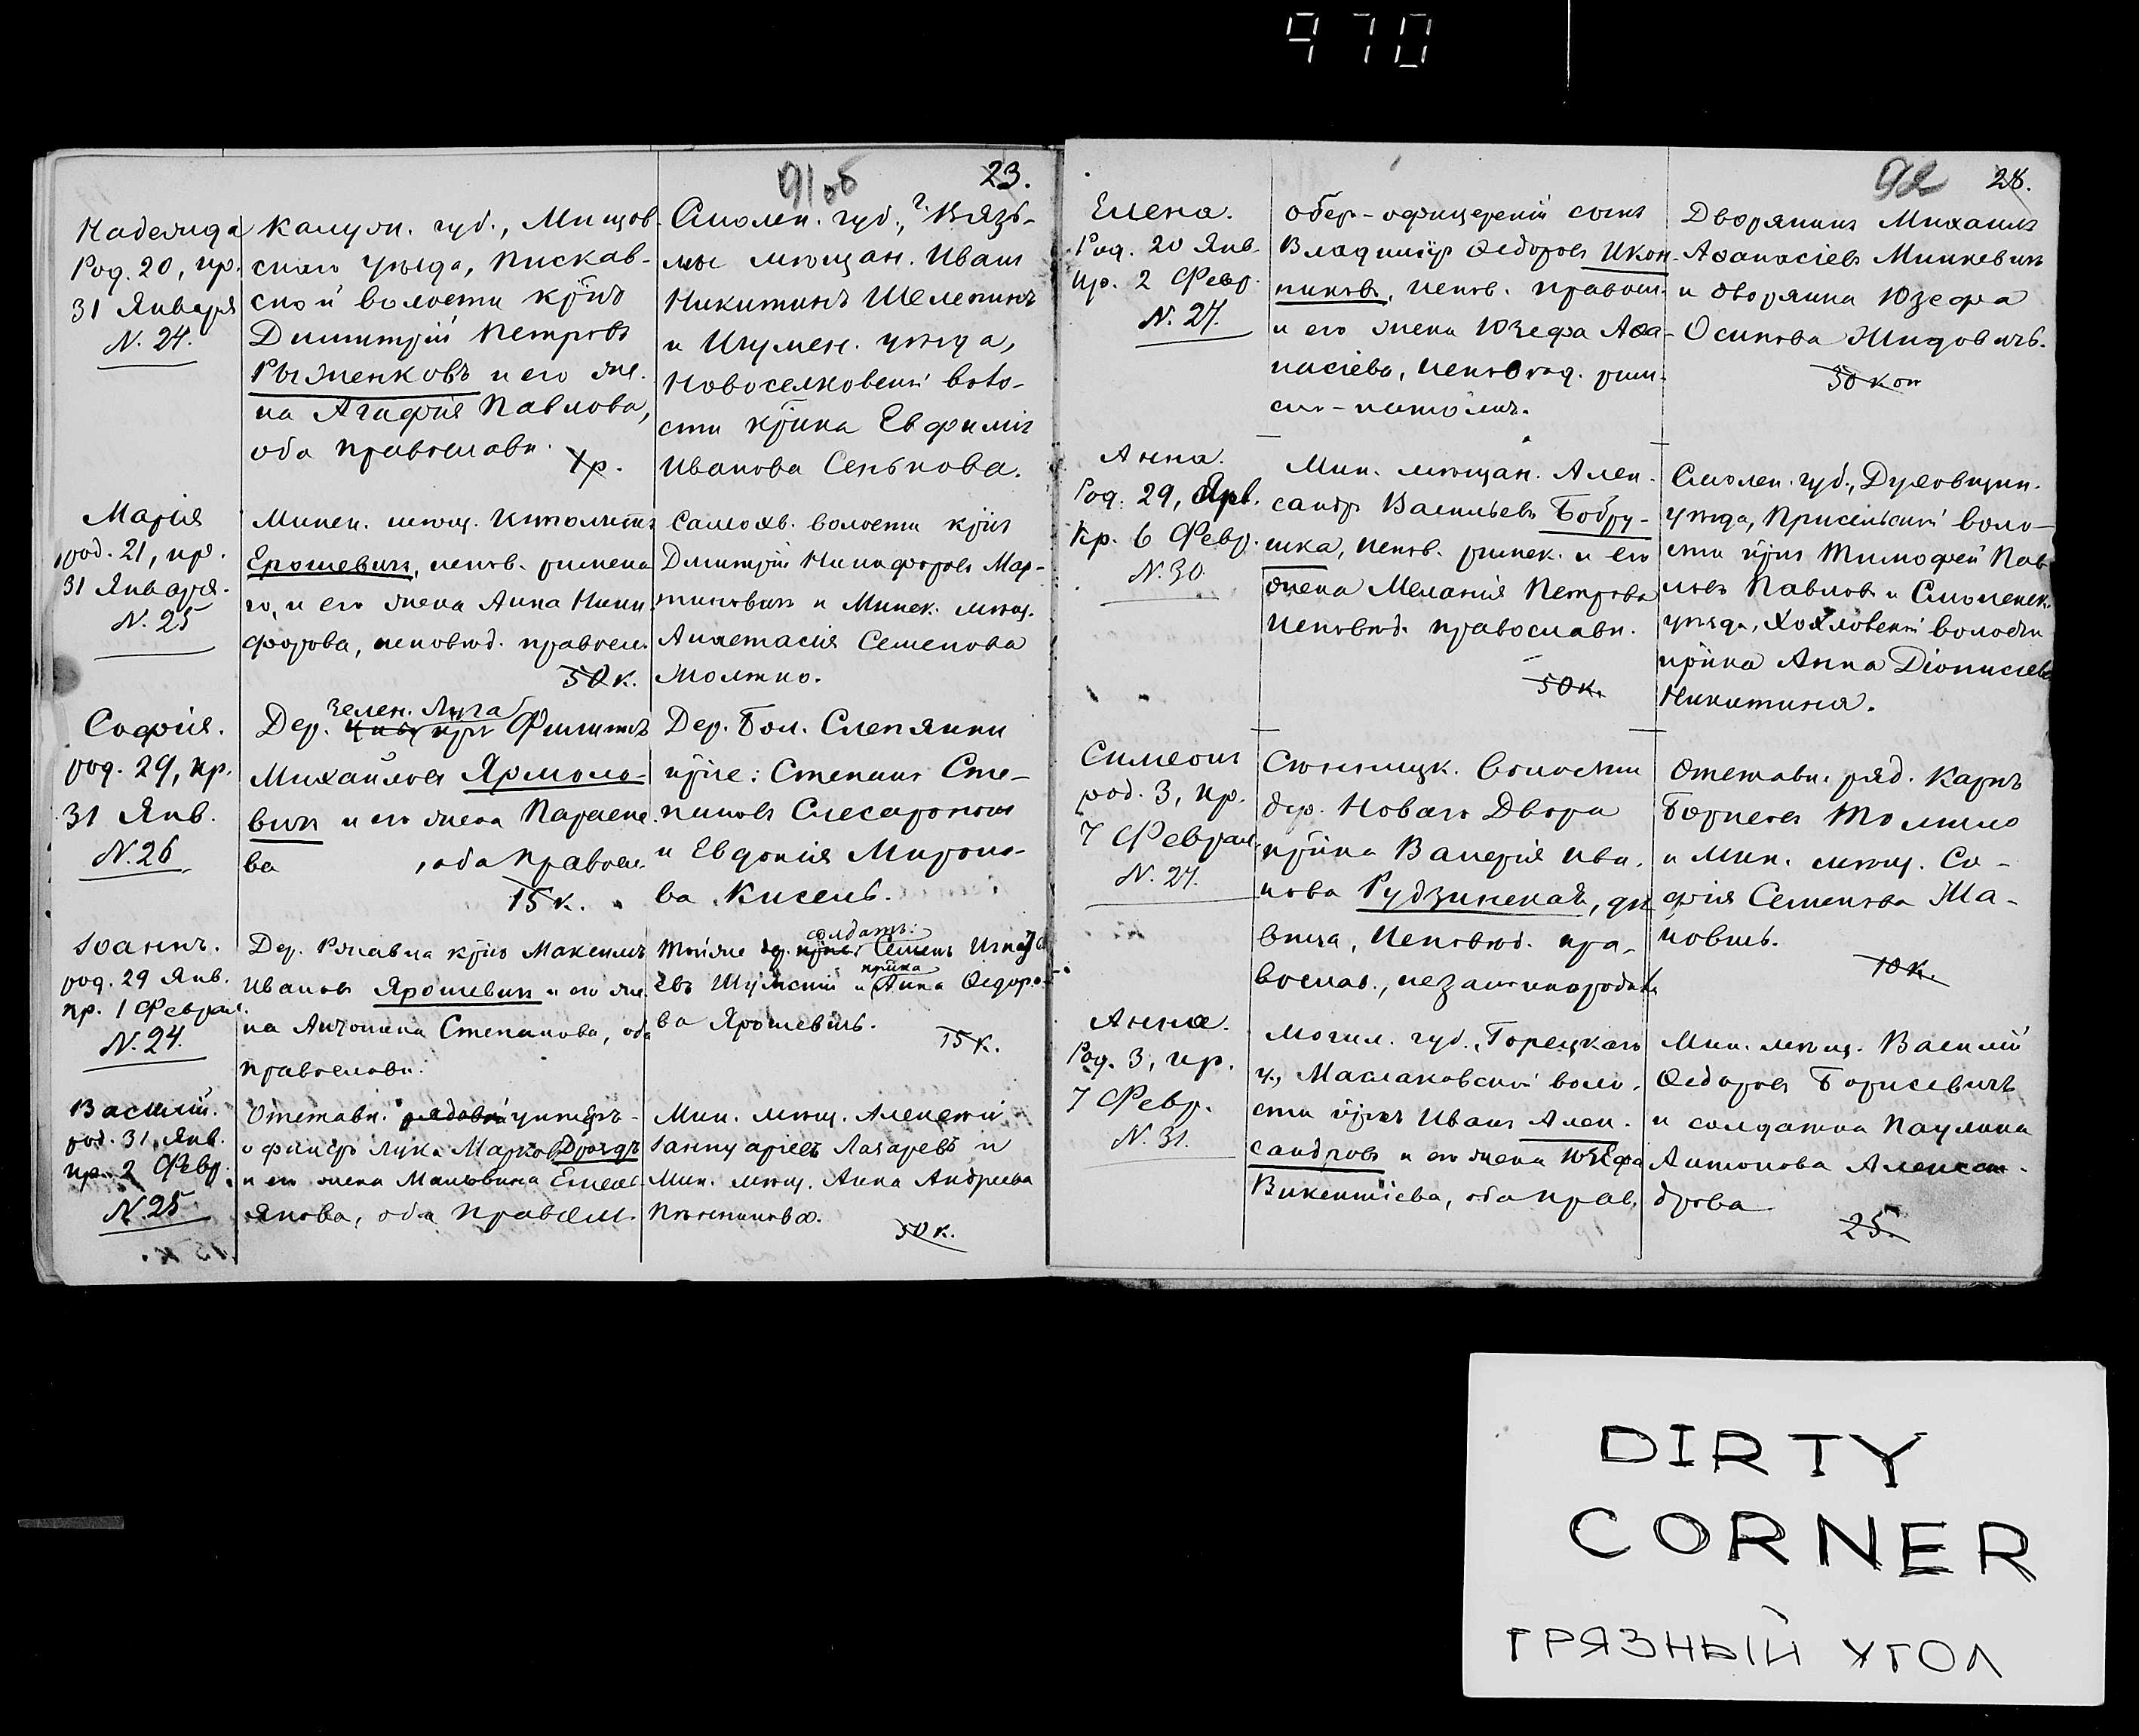 970
91об
23.
Надежда
Род. 20, кр.
31 Января
N. 24.
Калуж. губ., Мещов-
скаго уезда, Пискав-
ской волости кр-нъ
Димитрій Петровъ
Рыженковъ и его же-
на Агафія Павлова,
оба православн.
Смолен. губ., г. Вязь-
мы мѣщан. Иванъ
Никитинъ Шелепинъ
и Игумен. уѣзда,
Новоселковской воло-
сти кр-нка Евфимія
Иванова Сенькова.
Марія
род. 21, кр.
31 Января.
N. 25
Минск. мѣщ. Ипполитъ
Ерошевичъ, исповѣд. римска
го, и его жена Анна Ники-
форова, исповѣд. правосл.
50 к.
Самохв. волости кр-нъ
Димитрій Никифоровъ Мар-
тиновичъ и Минск. мѣщ.
Анастасія Семенова
Молтко.
Софія.
род. 29, кр.
31 Янв.
N. 26
Зелен. Луга
Дер. кр-нъ Филиппъ
Михайловъ Ярмоло-
вичъ и его жена Параске-
ва , оба правосл.
15 к.
Дер. Бол. Слепянки
кр-не: Степанъ Сте-
пановъ Слесаронокъ
и Евдокія Мироно-
ва Кисель.
Іоаннъ.
род. 29 Янв.
кр. 1 Феврал.
N. 24.
Дер. Ржавца кр-нъ Максимъ
Ивановъ Ярошевичъ и его же-
на Антонина Степанова, оба
православн.
солдатъ
Тойже дер. Семенъ Игнать
кр-нка
евъ Шумскій и Анна Ѳедоро-
ва Ярошевичъ.
15 к.
Василій.
род. 31 Янв.
кр. 2 Февр.
N. 25
Отставн. рядовой унтеръ-
офицеръ Лука Марковъ Дроздъ
и его жена Мальвина Емель-
янова, оба правосл.
Мин. мѣщ. Алексѣй
Іаннуаріевъ Лазаревъ и
Мин. мѣщ. Анна Андреева
50 к.
92
28.
Елена.
Род. 20 Янв.
кр. 2 Февр.
N. 27.
Обер-офицерскій сынъ
Владиміръ Ѳедоровъ Икон-
никовъ, испов. правосл.
и его жена Юзефа Аѳа-
насіева, исповѣд. рим-
ско-католич.
Дворянинъ Михаилъ
Аѳанасіевъ Минкевичъ
и дворянка Юзефа
Осипова Жидовичъ.
50 коп
Анна.
Род. 29, Янв.
Кр. 6 Февр.
N. 30.
Мин. мѣщан. Алек-
сандръ Васильевъ Бобру-
шка, испов. римск. и его
жена Меланія Петрова
исповѣд. православн.
50 к.
Смолен. губ., Духовщин.
уѣзда, Присельской воло-
сти кр-нъ Тимофей Пав-
ловъ Павловъ и Смоленск.
уѣзда, Хохловской волости
кр-нка Анна Діонисіева
Никитина.
Симеонъ
род. 3, кр.
7 Феврал.
N. 27.
Сенницк. волости
дер. Новаго Двора
кр-нка Валерія Ива-
нова Рудзинская, дѣ
вица, исповѣд. пра-
вослав., незаконнорожд.
Отставн. ряд. Карпъ
Борисовъ Томило
и Мин. мѣщ. Со-
фія Семенова Ма-
ковичъ.
10 к.
Анна.
Род. 3, кр.
7 Февр.
N. 31.
Могил. губ., Горецкаго
у., Маслаковской воло-
сти кр-нъ Иванъ Алек-
сандровъ и его жена Юзефа
Викентіева, оба прав.
Мин. мѣщ. Василій
Ѳедоровъ Борисевичъ
и солдатка Паулина
Антонова Алексан-
дрова
25.
DIRTY
CORNER
ГРЯЗНЫЙ УГОЛ